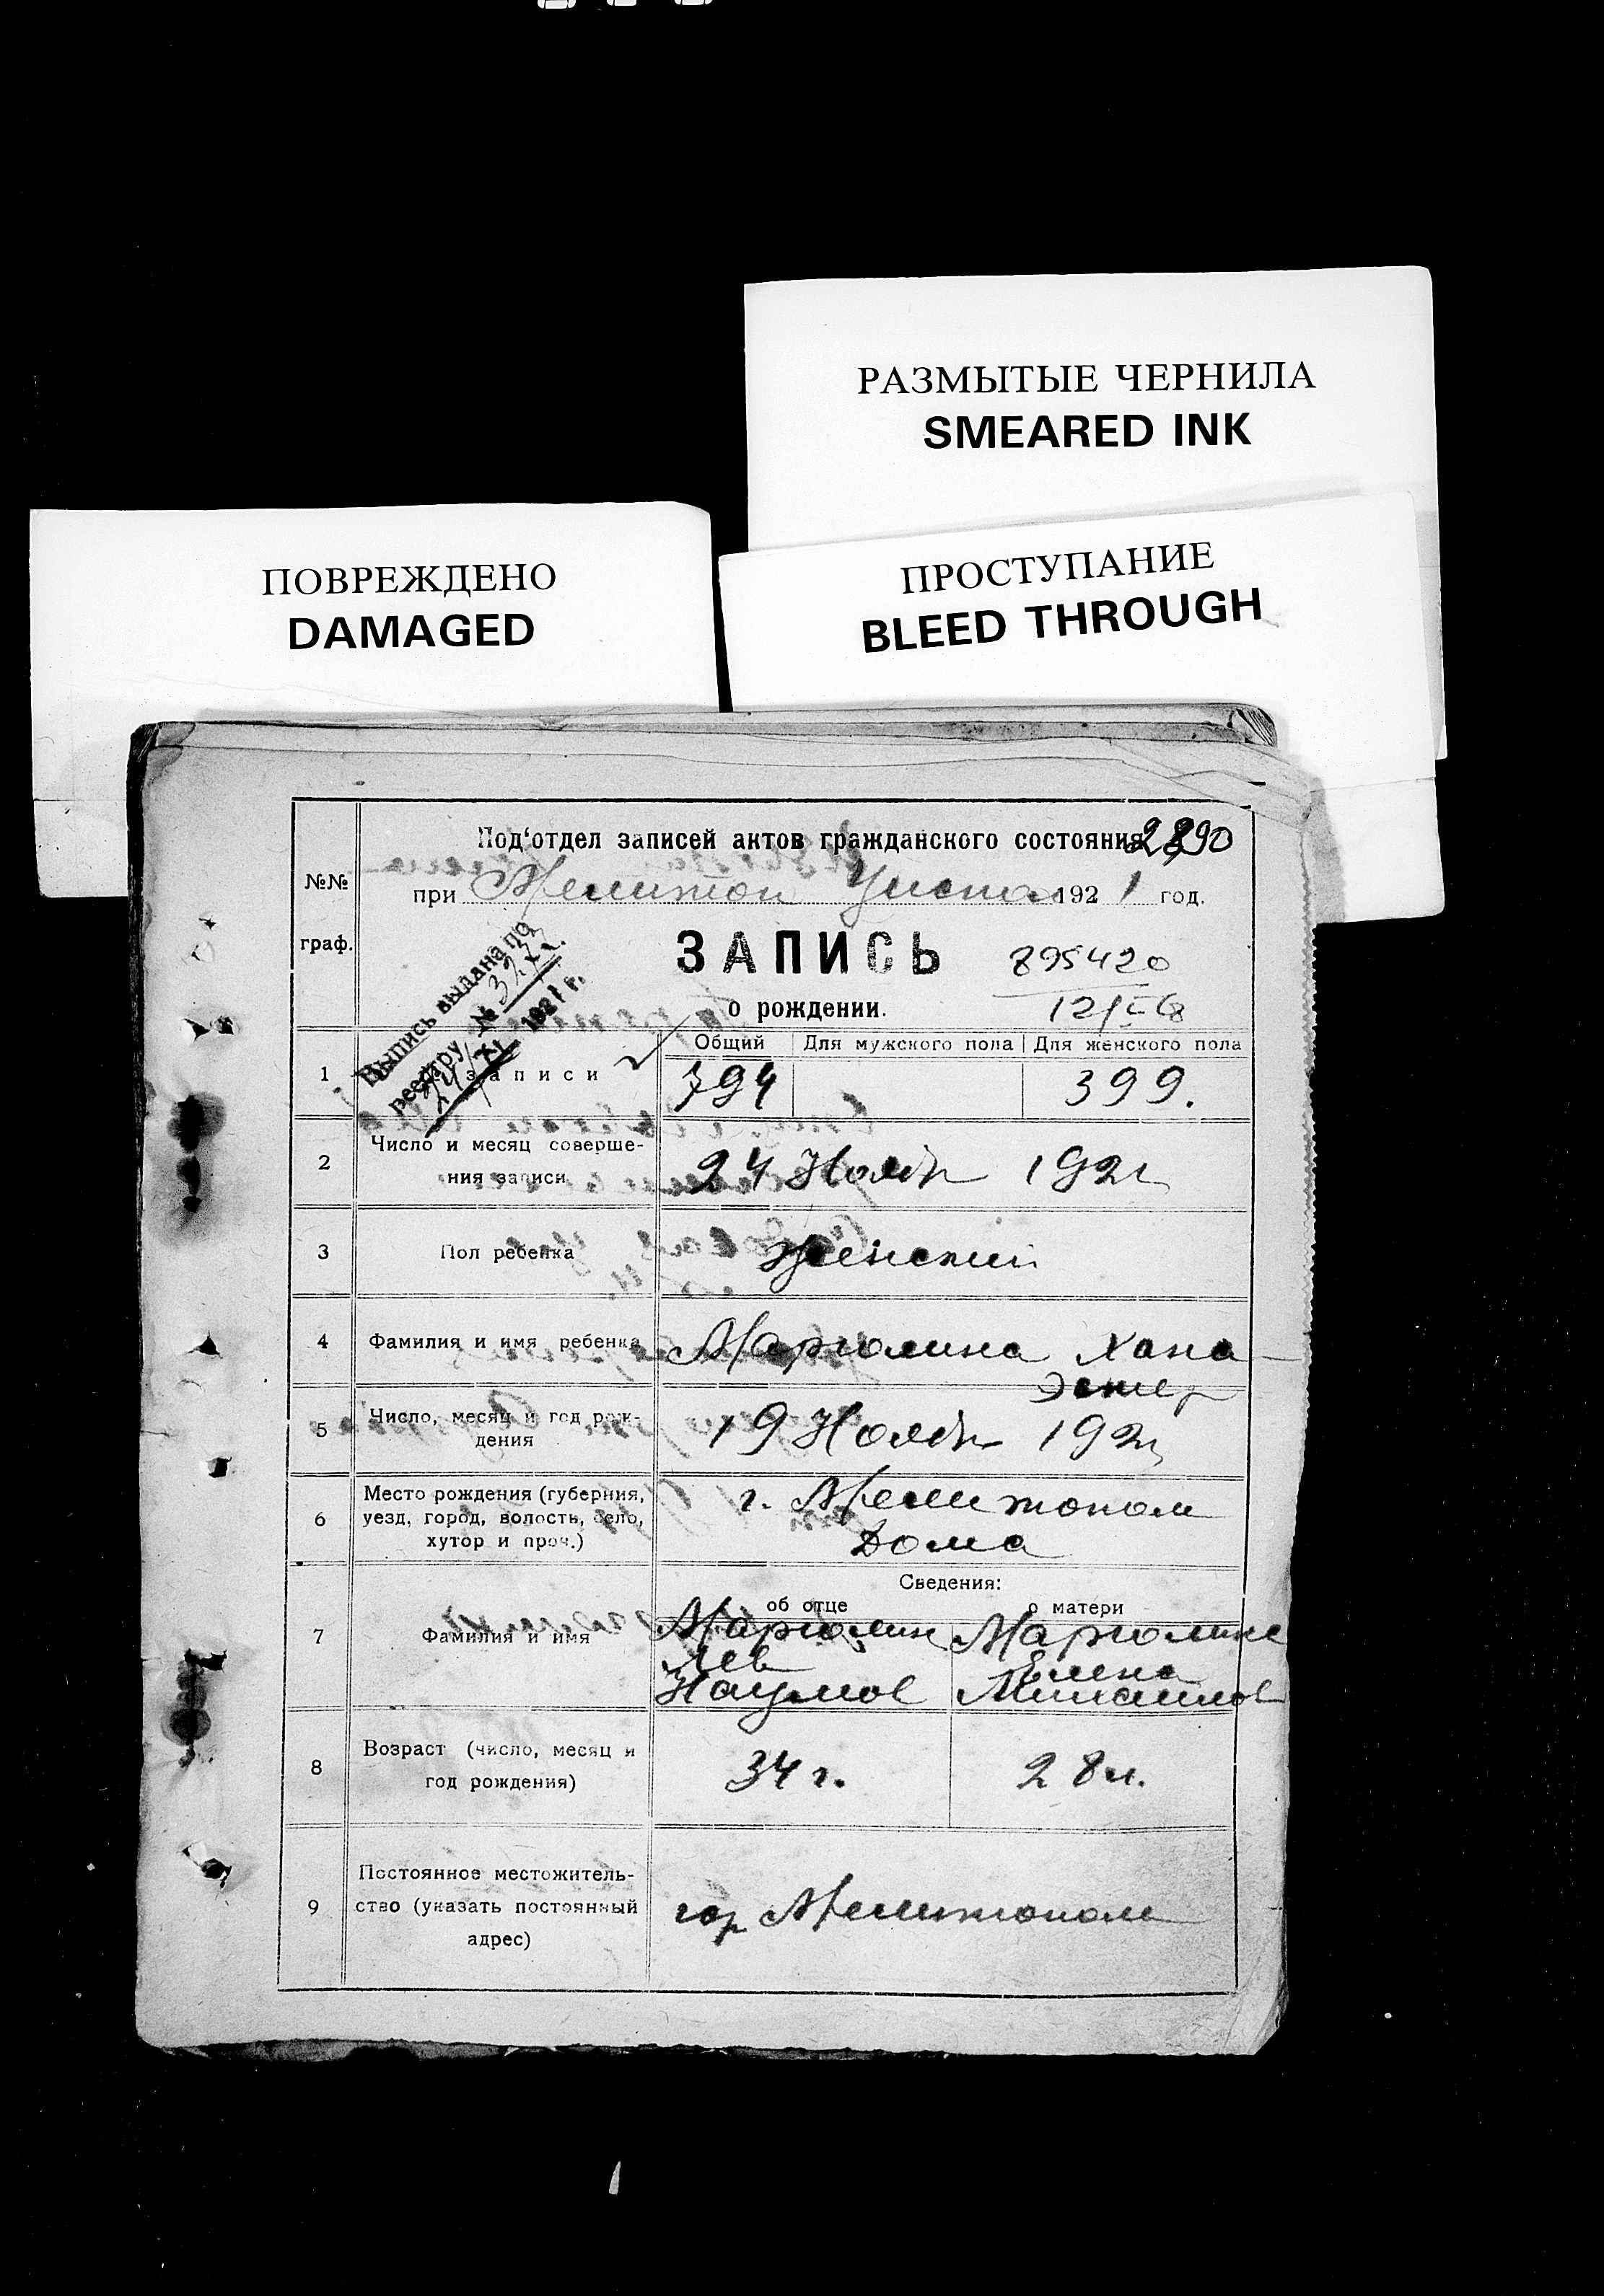 РАЗМЫТЫЕ ЧЕРНИЛА
SMEARED INK
ПОВРЕЖДЕНО
DAMAGED
ПРОСТУПАНИЕ
BLEED THROUGH
Под‘отдел записей актов гражданского состояния
2890
№№
граф.
при Мелитоп 192 1 год.
ЗАПИСЬ
895420
о рождении.
Выпись выдана по
реестру №
1921 г.
Общий Для мужского пола Для женского пола
1 записи 794 399.
2 Число и месяц соверше-
ния записи
24 Ноябр 1921
3 Пол ребенка Женский
4 Фамилия и имя ребенка Марголина Хана-
Эстер
5 Число, месяц и год рож-
дения
19 Ноябр 1921
6 Место рождения (губерния,
уезд, город, волость, село,
хутор и проч.)
г. Мелитополь
Дома
Сведения:
об отце о матери
7 Фамилия и имя
Марголин Марголина
Лев Елена
Наумов Михайлов
8 Возраст (число, месяц и
год рождения)
34 г. 28 л.
9 Постоянное местожитель-
ство (указать постоянный
адрес)
гор Мелитополь